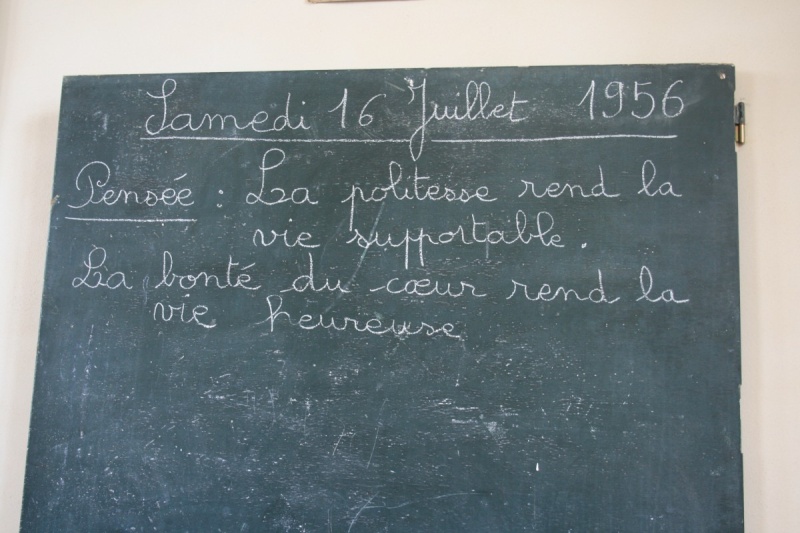 Samedi 16 Juillet 1956
Pensée : La politesse rend la
vie supportable.
La bonté du cœur rend la
vie heureuse